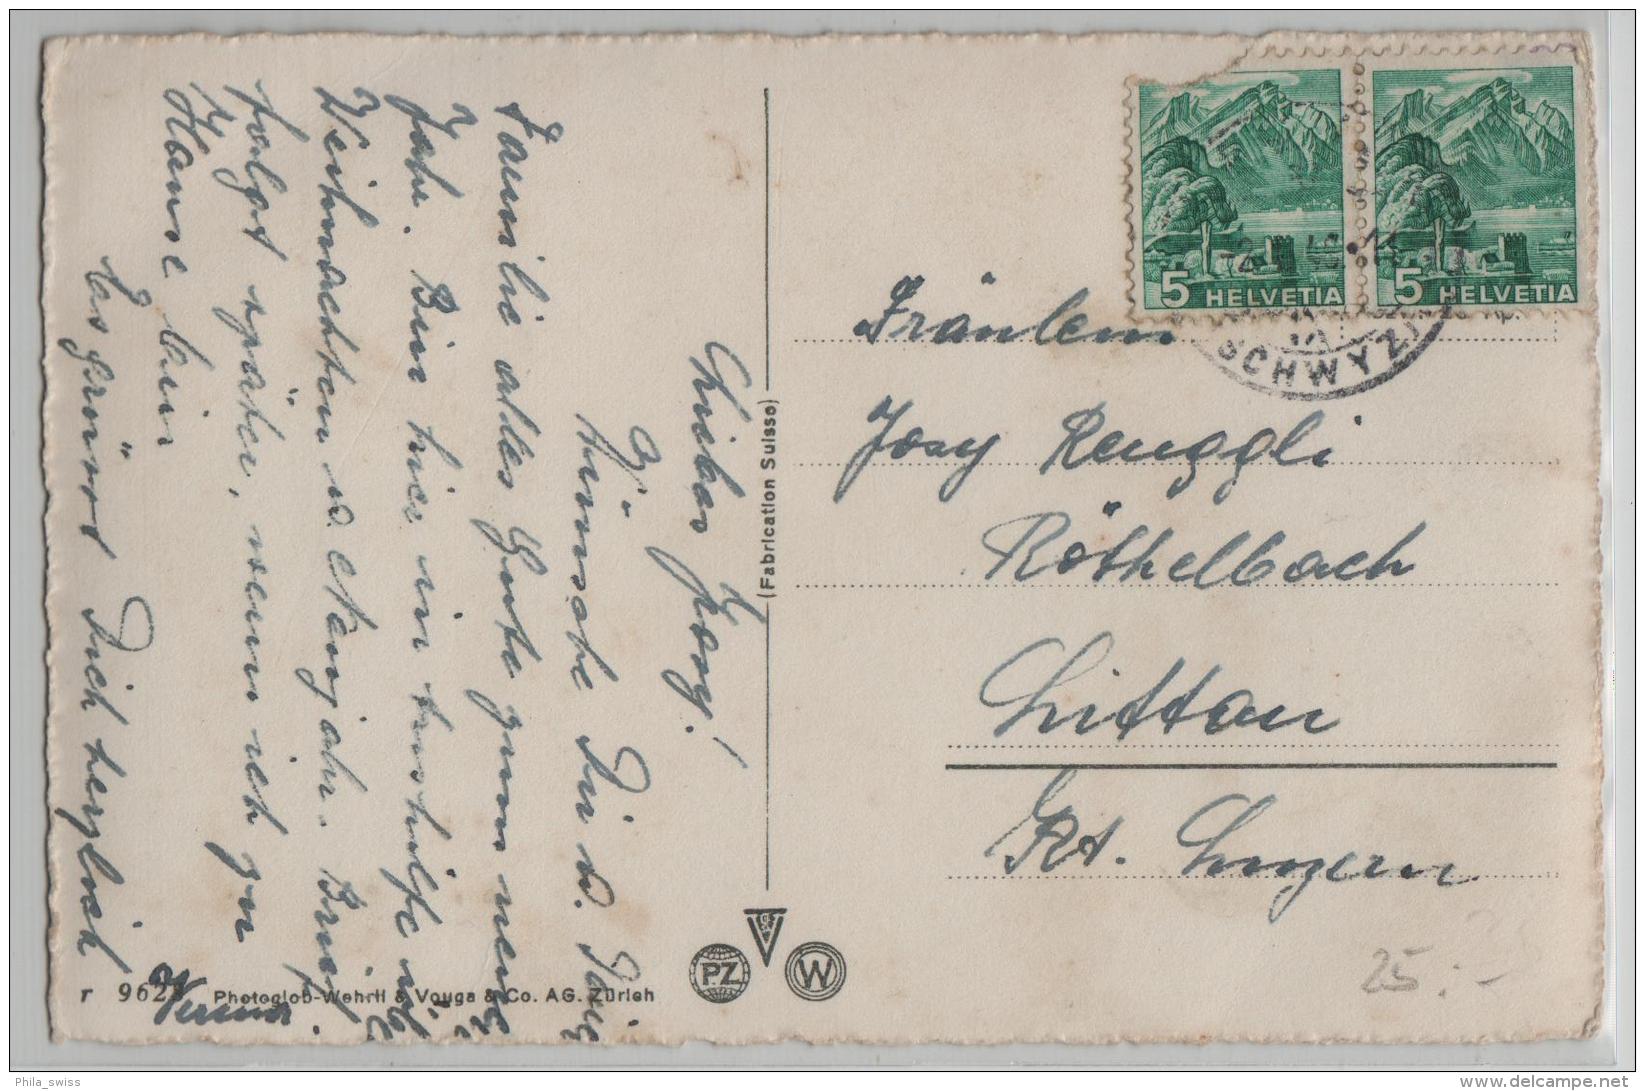 Liebes Josy!
Wünsche Dir u. Deiner
Familie alles Gute zum neuen
Jahr. Bin hier in Aushilfe über
Weihnachten u. Neujahr. Brief
folgt später, wenn ich zu
Hause bin
Es grüsst Dich herzlich
Verena.
Fräulein
Josy Renggli
Röthelbach
Littau
Kt. Luzern
5 HELVETIA
5 HELVETIA
SCHWYZ
(Fabrication Suisse)
PZ
W
r 9628 Photoglob-Wehrli & Vouga & Co. AG. Zürich
25.-
Phila_swiss
www.delcampe.net